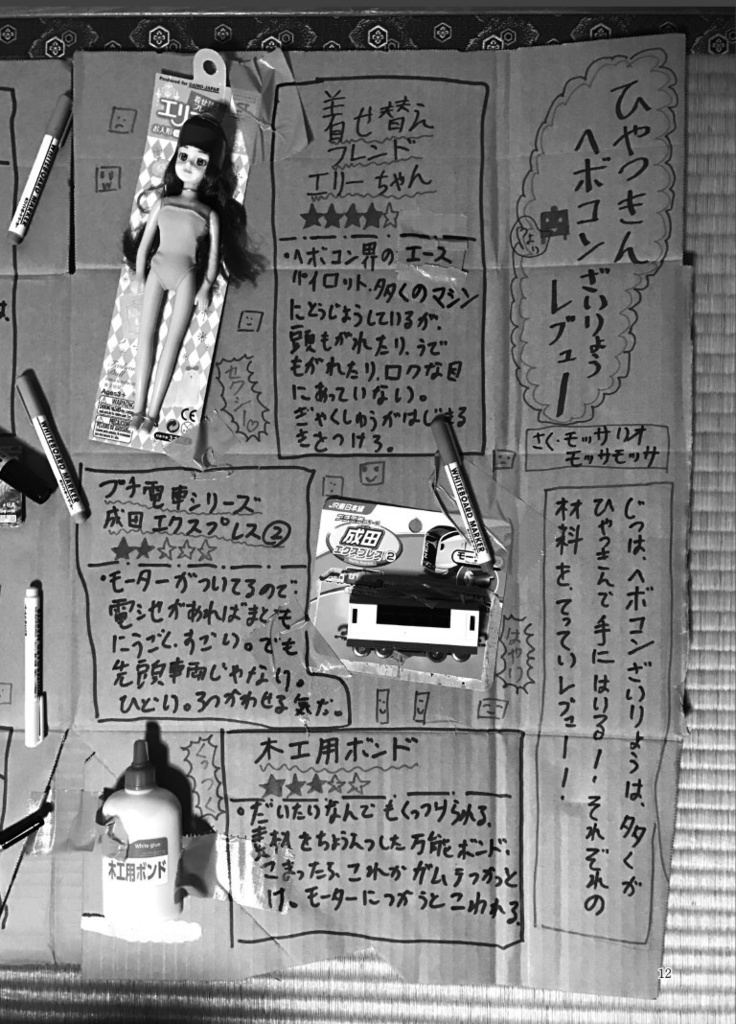 ひゃっきん
ヘボコンざいりょう
レビュー
さく・モッサ12才
モッサモッサ
じつは、ヘボコンざいりょうは、多くが
ひゃっきんで手にはいる！それぞれの
材料を、てっていレビュー！
着せ替え
フレンド
エリーちゃん
★★★★☆
・ヘボコン界のエース
パイロット。多くのマシン
にとうじょうしているが、
頭もがれたり、うで
もがれたり、ロクな目
にあっていない。
ぎゃくしゅうがはじまる
きをつけろ。
Produced for DAISO JAPAN
エリー
お人形
Ages3+
WARNING
CE
セクシー♡
プチ電車シリーズ
成田エクスプレス②
★★☆☆☆
・モーターがついてるので、
電池があればまともに
うごく。すごい。でも
先頭車両じゃない。
ひどい。3つかわせる気だ。
JR東日本編
成田
エクスプレス2
はやい
木工用ボンド
★★★☆☆
・だいたいなんでもくっつけられる。
素材をちょうえつした万能ボンド。
こまったら、これかガムテつかっと
け。モーターにつかうとこわれる。
White glue
木工用ボンド
WHITEBOARD MARKER
WHITEBOARD MARKER
WHITEBOARD MARKER
12